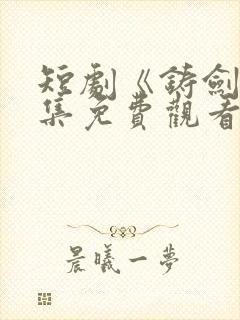 短劇《鋳劍
集免費觀看
晨曦一夢